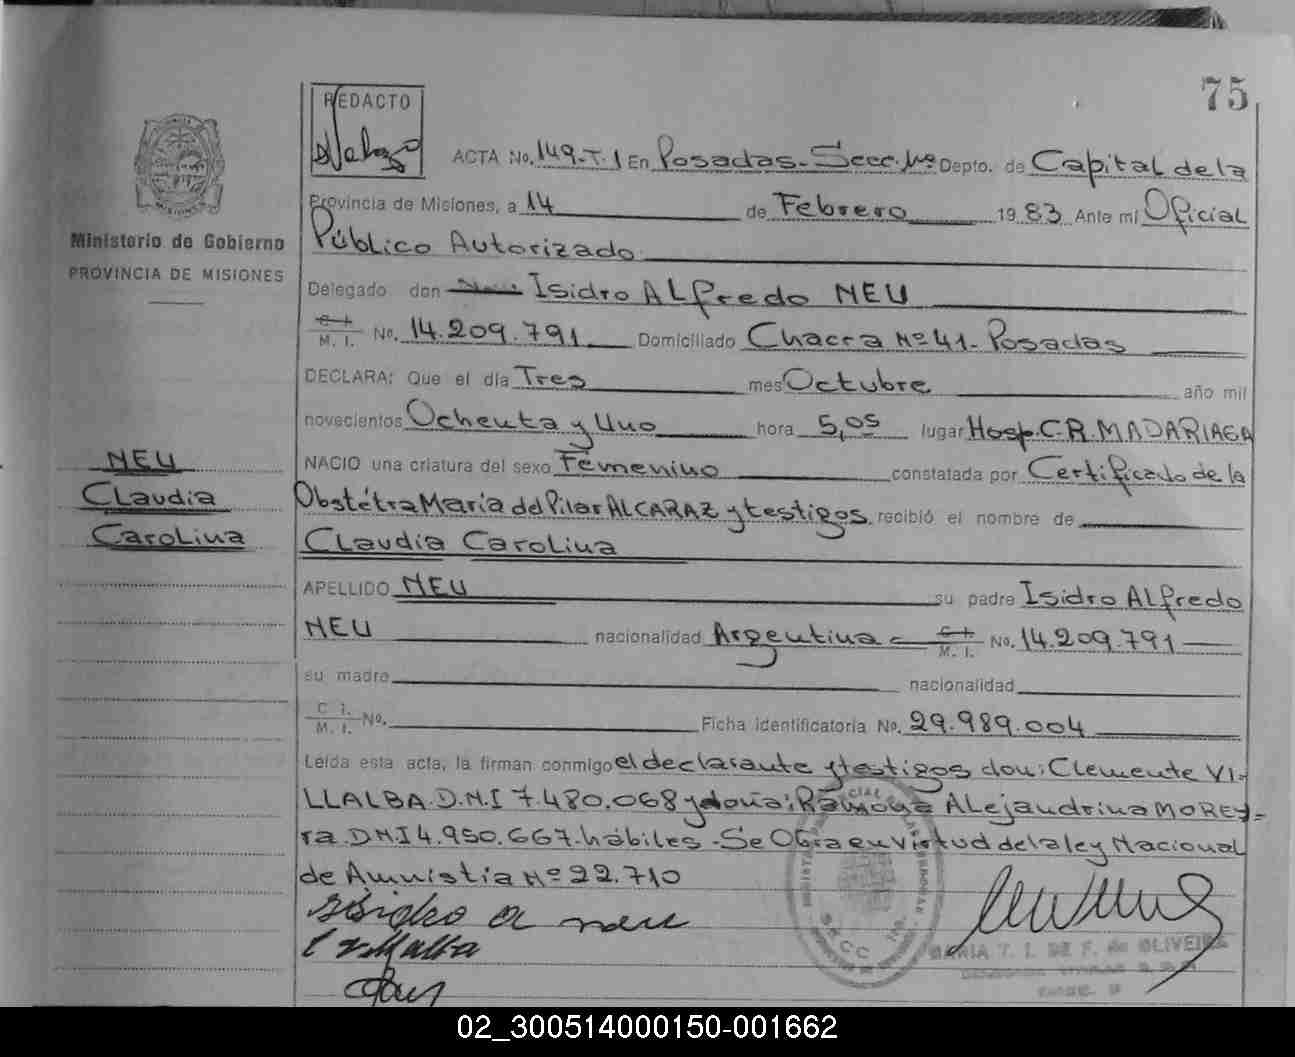 75
REDACTO
ACTA No. 149-T.1 En Posadas-Secc. 1ra Depto. de Capital de la
Provincia de Misiones, a 14 de Febrero 1983 Ante mi Oficial
Ministerio de Gobierno
PROVINCIA DE MISIONES
Público Autorizado
Delegado don Isidro ALfredo NEU
C. I. M. I. No. 14.209.791 Domiciliado Chacra Nº 41- Posadas
DECLARA: Que el día Tres mes Octubre año mil
novecientos Ochenta y Uno hora 5,05 lugar Hosp.C.R.MADARIAGA
NEU
NACIO una criatura del sexo Femenino constatada por Certificado de la
CLaudia
Obstétra María del Pilar ALCARAZ y testigos, recibió el nombre de
CaroLina
CLaudia CaroLina
APELLIDO NEU su padre Isidro ALfredo
NEU nacionalidad Argentina C. I. M. I. No. 14.209.791
su madre nacionalidad
C. I. M. I. No. Ficha identificatoria No. 29.989.004
Leída esta acta, la firman conmigo el declarante y testigos don: Clemente VI-
LLALBA.D.N.I 7.480.068 y doña: Ramona ALejandrina MOREY-
ra.D.N.I 4.950.667.hábiles-Se Obra en virtud de la ley Nacional
de Amnistia Nº 22.710
Isidro A neu
C Villalba
MARIA T. I. DE F. de OLIVEIRA
02_300514000150-001662